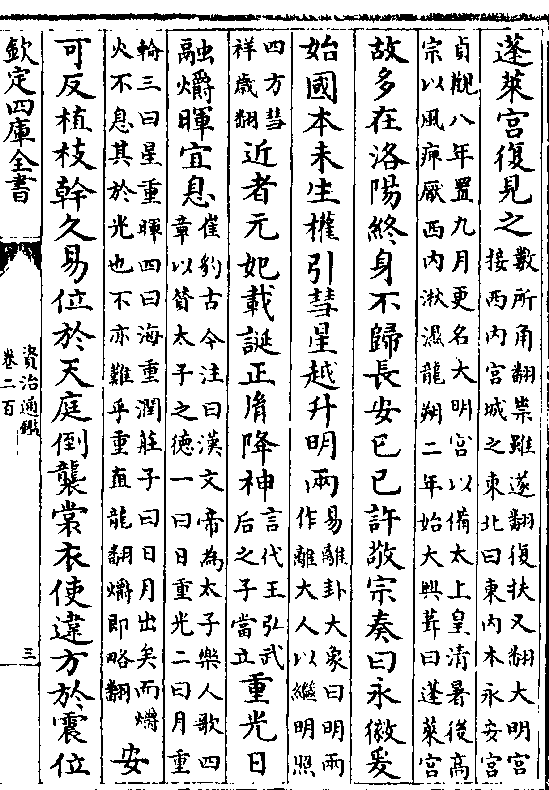 蓬萊宮復見之
數所角翻祟雖遂翻復扶又翻大明宮
接西内宮城之東北曰東内本永安宮
貞觀八年置九月更名大明宮以備太上皇清暑後高
宗以風痹厭西内湫濕龍朔二年始大興葺曰蓬萊宮
故多在洛陽終身不歸長安巳已許敬宗奏曰永徽爰
始國本未生權引彗星越升明兩
易離卦大象曰明兩
作離大人以繼明照
四方彗
祥歲翻
近者元妃載誕正胤降神
言代王弘武
后之子當立
重光日
融爝暉宜息
崔豹古今注曰漢文帝為太子樂人歌四
章以贊太子之德一曰日重光二曰月重
輪三曰星重暉四曰海重潤莊子曰日月出矣而爝
火不息其於光也不亦難乎重直龍翻爝即略翻
安
可反植枝幹久易位於天庭倒襲裳衣使違方於震位
欽定四庫全書
資治通鑑
卷二百
三